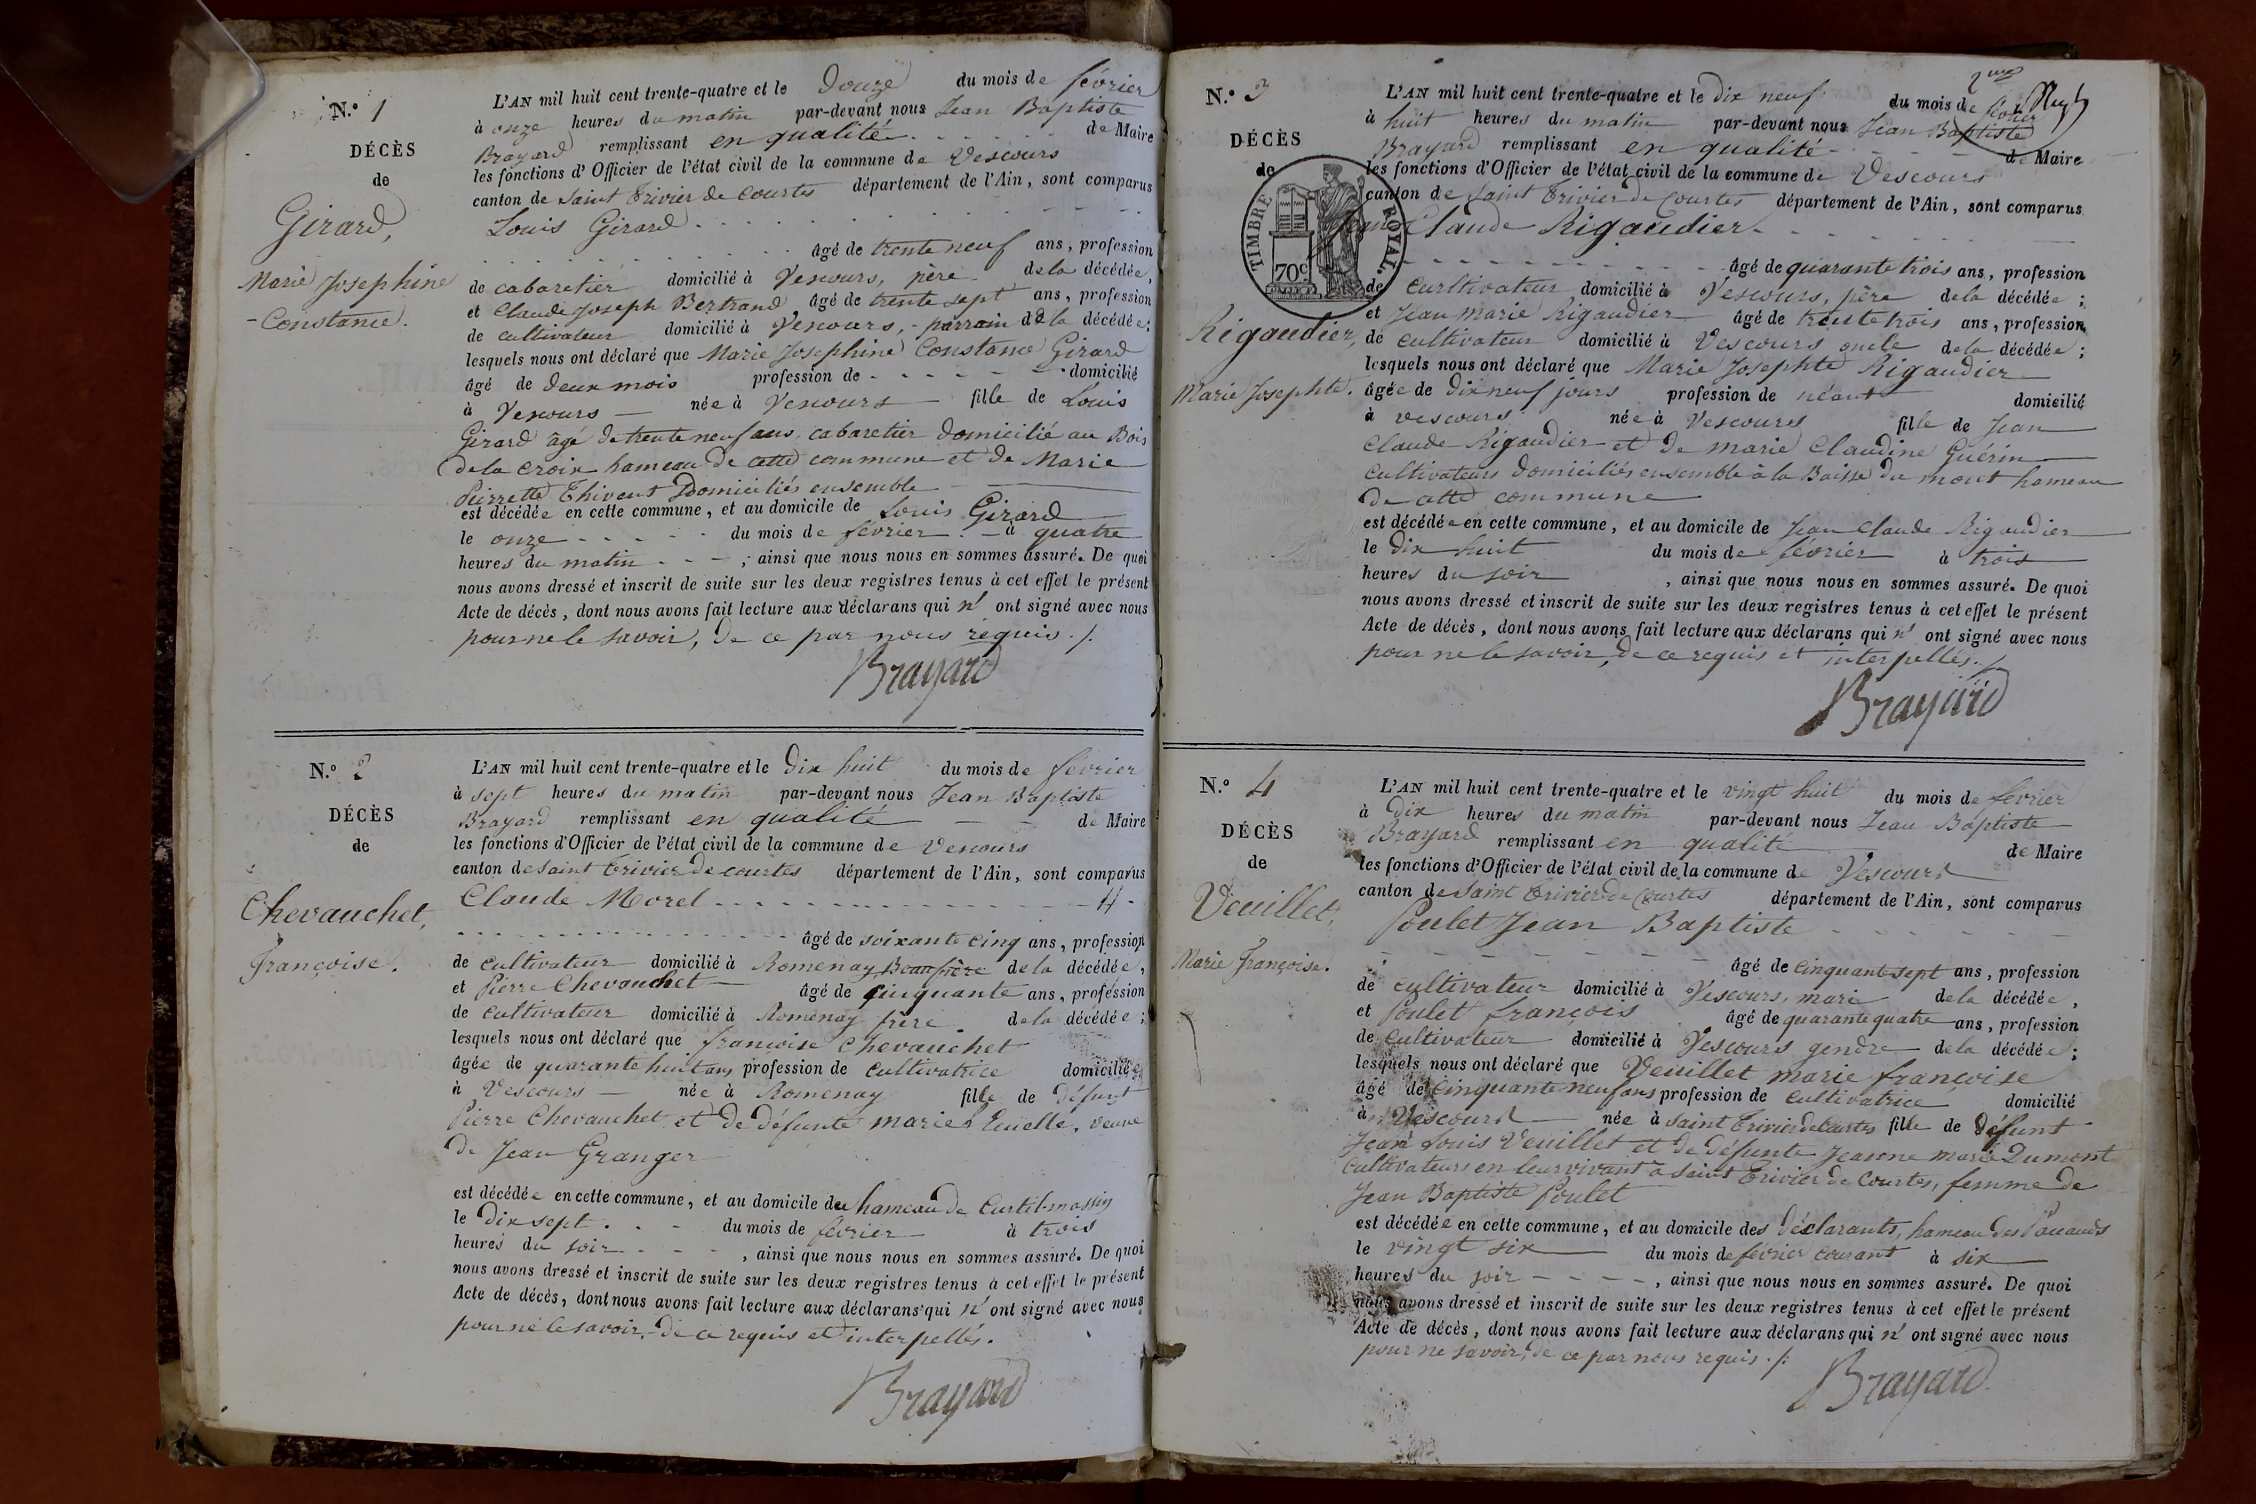 N.° 1
DÉCÈS
de
Girard,
Marie Josephine
-Constance.
L'AN mil huit cent trente-quatre et le Douze du mois de février
à onze heures du matin par-devant nous Jean Baptiste
Brayard remplissant en qualité de Maire
les fonctions d'Officier de l'état civil de la commune de Vescours
canton de Saint Trivier de Courtes département de l'Ain, sont comparus
Louis Girard
âgé de trente neuf ans, profession
de cabaretier domicilié à Vescours, père dela décédée,
et Claude Joseph Bertrand âgé de trente sept ans, profession
de cultivateur domicilié à Vescours, - parrain dela décédée;
lesquels nous ont déclaré que Marie Josephine Constance Girard
âgé de deux mois profession de - - - - - domicilié
à Vescours — née à Vescours — fille de Louis
Girard âgé de trente neuf ans, cabaretier domicilié au Bois
de la croix hameau de cette commune et de Marie
Pierrette Thivent Domiciliés ensemble
est décédée en cette commune, et au domicile de Louis Girard
le onze - - - - - du mois de février - à quatre
heures du matin - - - ; ainsi que nous nous en sommes assuré. De quoi
nous avons dressé et inscrit de suite sur les deux registres tenus à cet effet le présent
Acte de décès, dont nous avons fait lecture aux déclarans qui n' ont signé avec nous
pour ne le savoir, de ce par nous requis ./.
Brayard
N.° 2
DÉCÈS
de
Chevauchet,
Françoise.
L'AN mil huit cent trente-quatre et le Dix huit du mois de février
à sept heures du matin par-devant nous Jean Baptiste
Brayard remplissant en qualité — — de Maire
les fonctions d'Officier de l'état civil de la commune de Vescours
canton de Saint Trivier de courtes département de l'Ain, sont comparus
Claude Morel
âgé de soixante cinq ans, profession
de cultivateur domicilié à Romenay Beaufrère dela décédée,
et Pierre Chevauchet — âgé de cinquante ans, profession
de cultivateur domicilié à Romenay frère. dela décédée;
lesquels nous ont déclaré que françoise Chevauchet
âgée de quarante huit ans profession de cultivatrice domiciliée
à Vescours — née à Romenay fille de défunt
Pierre Chevauchet et de défunte marie veuve
de Jean Granger
est décédée en cette commune, et au domicile du hameau de Curtil-massin
le Dix sept . . - du mois de février — à trois
heures du soir - - - - , ainsi que nous nous en sommes assuré. De quoi
nous avons dressé et inscrit de suite sur les deux registres tenus à cet effet le présent
Acte de décès, dont nous avons fait lecture aux déclarans qui n' ont signé avec nous
pour ne le savoir, - de ce requis et interpellés.
Brayard
N.° 3
DÉCÈS
de
TIMBRE ROYAL.
70c
Rigaudier,
Marie Josephte.
2me
L'AN mil huit cent trente-quatre et le Dix neuf du mois de février
à huit heures du matin par-devant nous Jean Baptiste
Brayard remplissant en qualité - - - de Maire
les fonctions d'Officier de l'état civil de la commune de Vescours
canton de Saint Trivier de Courtes département de l'Ain, sont comparus
Jean Claude Rigaudier
âgé de quarante trois ans, profession
de Curltivateur domicilié à Vescours, père dela décédée;
et Jean marie Rigaudier — âgé de trente trois ans, profession
de cultivateur domicilié à Vescours oncle dela décédée;
lesquels nous ont déclaré que Marie Josephte Rigaudier
âgée de Dix neuf jours profession de néant domicilié
à vescours née à Vescours fille de Jean
Claude Rigaudier et de marie Claudine Guérin
cultivateurs domiciliés ensemble à la Baisse du mont hameau
de cette commune
est décédée en cette commune, et au domicile de Jean Claude Rigaudier
le Dix huit du mois de février à trois
heures du soir , ainsi que nous nous en sommes assuré. De quoi
nous avons dressé et inscrit de suite sur les deux registres tenus à cet effet le présent
Acte de décès, dont nous avons fait lecture aux déclarans qui n' ont signé avec nous
pour ne le savoir, de ce requis et interpellés./.
Brayard
N.° 4
DÉCÈS
de
Veuillet,
Marie Françoise.
L'AN mil huit cent trente-quatre et le vingt huit du mois de février
à dix heures du matin par-devant nous Jean Baptiste
Brayard remplissant en qualité de Maire
les fonctions d'Officier de l'état civil de la commune de Vescours
canton de Saint Trivier de Courtes département de l'Ain, sont comparus
Poulet Jean Baptiste
âgé de cinquant sept ans, profession
de cultivateur domicilié à Vescours, mari dela décédée,
et Poulet françois âgé de quarante quatre ans, profession
de cultivateur domicilié à Vescours gendre dela décédée;
lesquels nous ont déclaré que Veuillet marie françoise
âgé de cinquante neuf ans profession de cultivatrice domicilié
à Vescours — née à Saint Trivier de Courtes fille de défunt
Jean Louis Veuillet et de défunte Jeanne marie Dumont
cultivateurs en leur vivant à Saint Trivier de Courtes, femme de
Jean Baptiste Poulet
est décédée en cette commune, et au domicile des déclarants, hameau des
le vingt six du mois de février courant à six
heures du soir - - - - , ainsi que nous nous en sommes assuré. De quoi
nous avons dressé et inscrit de suite sur les deux registres tenus à cet effet le présent
Acte de décès, dont nous avons fait lecture aux déclarans qui n' ont signé avec nous
pour ne savoir, de ce par nous requis ./.
Brayard